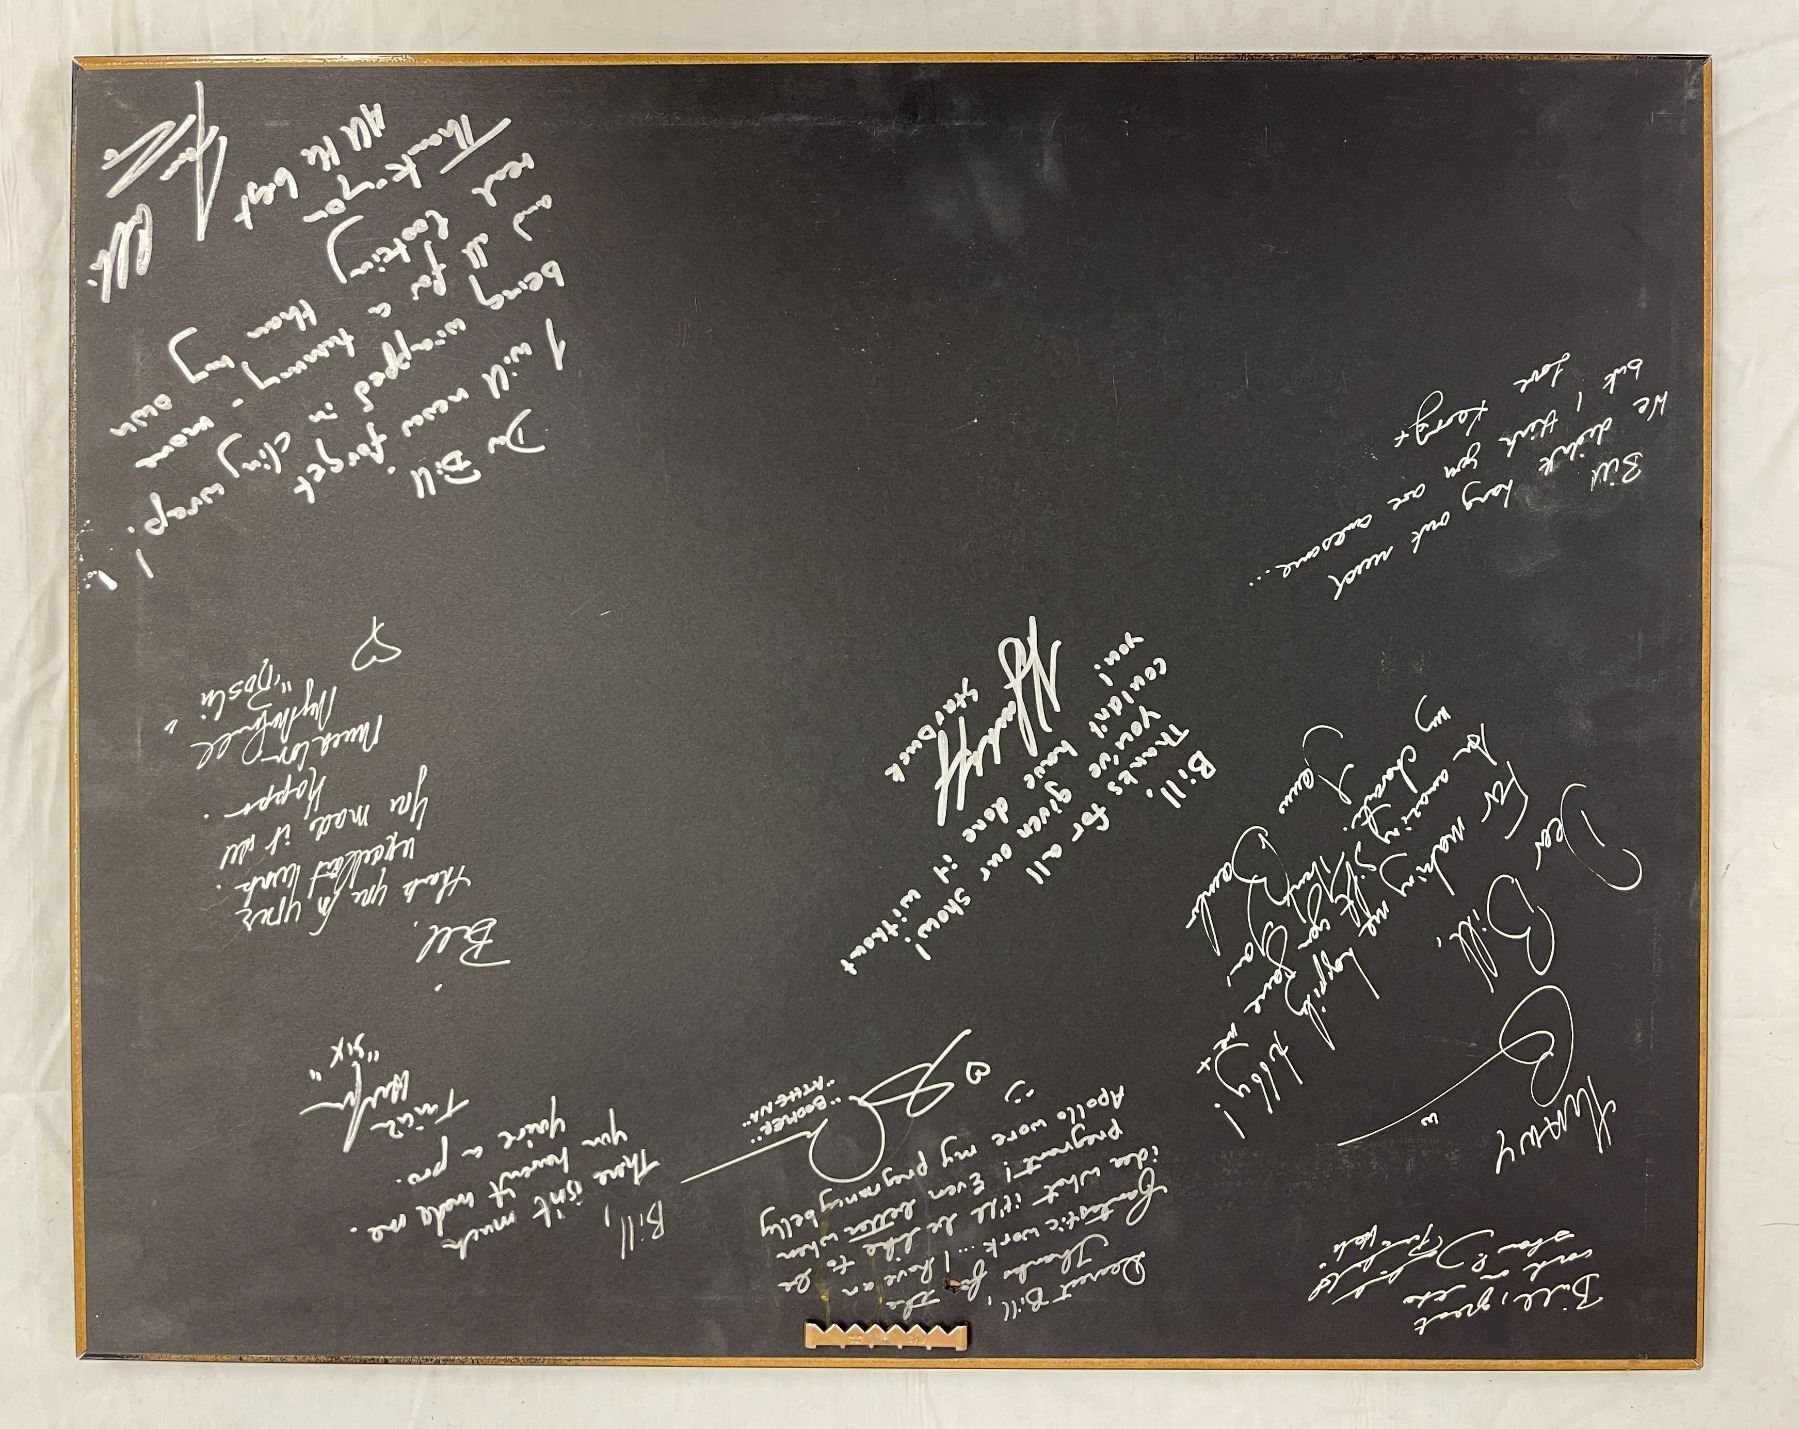 Bill, great
work on the
show
Dearest Bill,
Thanks for the
fantastic work.... I have an
idea what it'll be like to be
pregnant! Even better when
Apollo wore my pregnancy belly
:)
♡
"BOOMER"
"ATHENA"
Bill,
There isn't much
you haven't made me.
you're a pro.
Tricia
Helfer
"SIX"
Bill.
Thank you for your
excellent work.
You made it all
happen.
Much love
♡
Dear Bill,
For making me happily tubby!
my
James
Bamber
Bill.
Thanks for all
you've given our show!
couldn't have done it without
you!
Starbuck
Bill
We didn't hang out much
but I think you are awesome....
Love
Kerry x
Dear Bill.
I will never forget
being wrapped in cling wrap!
and all for a tummy - more
real looking than my own
Thank you
All the best